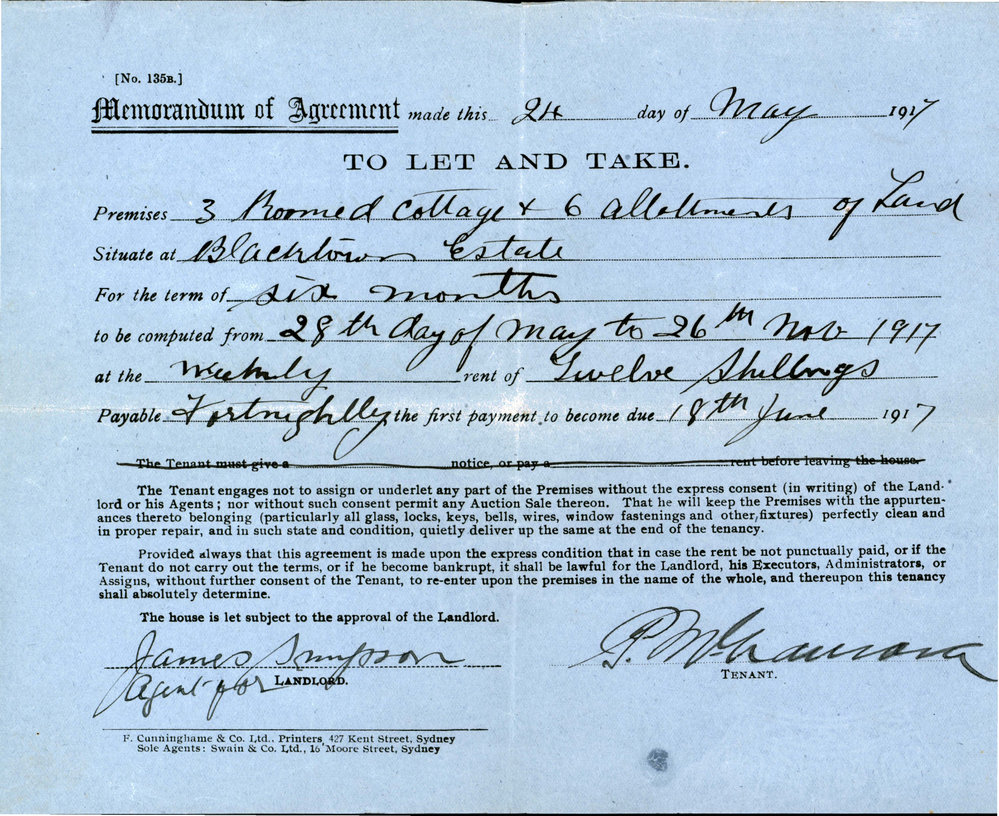 [No. 135B.]
Memorandum of Agreement made this 24 day of May 1917
TO LET AND TAKE.
Premises 3 Roomed Cottage & 6 allotments of Land
Situate at Blacktown Estate
For the term of six months
to be computed from 28th day of May to 26th Nov 1917
at the Weekly rent of Twelve Shillings
Payable Fortnightly the first payment to become due 18th June 1917
The Tenant must give a notice, or pay a rent before leaving the house.
The Tenant engages not to assign or underlet any part of the Premises without the express consent (in writing) of the Land-
lord or his Agents; nor without such consent permit any Auction Sale thereon. That he will keep the Premises with the appurten-
ances thereto belonging (particularly all glass, locks, keys, bells, wires, window fastenings and other fixtures) perfectly clean and
in proper repair, and in such state and condition, quietly deliver up the same at the end of the tenancy.
Provided always that this agreement is made upon the express condition that in case the rent be not punctually paid, or if the
Tenant do not carry out the terms, or if he become bankrupt, it shall be lawful for the Landlord, his Executors, Administrators, or
Assigns, without further consent of the Tenant, to re-enter upon the premises in the name of the whole, and thereupon this tenancy
shall absolutely determine.
The house is let subject to the approval of the Landlord.
James Simpson
Agent for LANDLORD.
P.
TENANT.
F. Cunninghame & Co. Ltd., Printers, 427 Kent Street, Sydney
Sole Agents: Swain & Co. Ltd., 16 Moore Street, Sydney